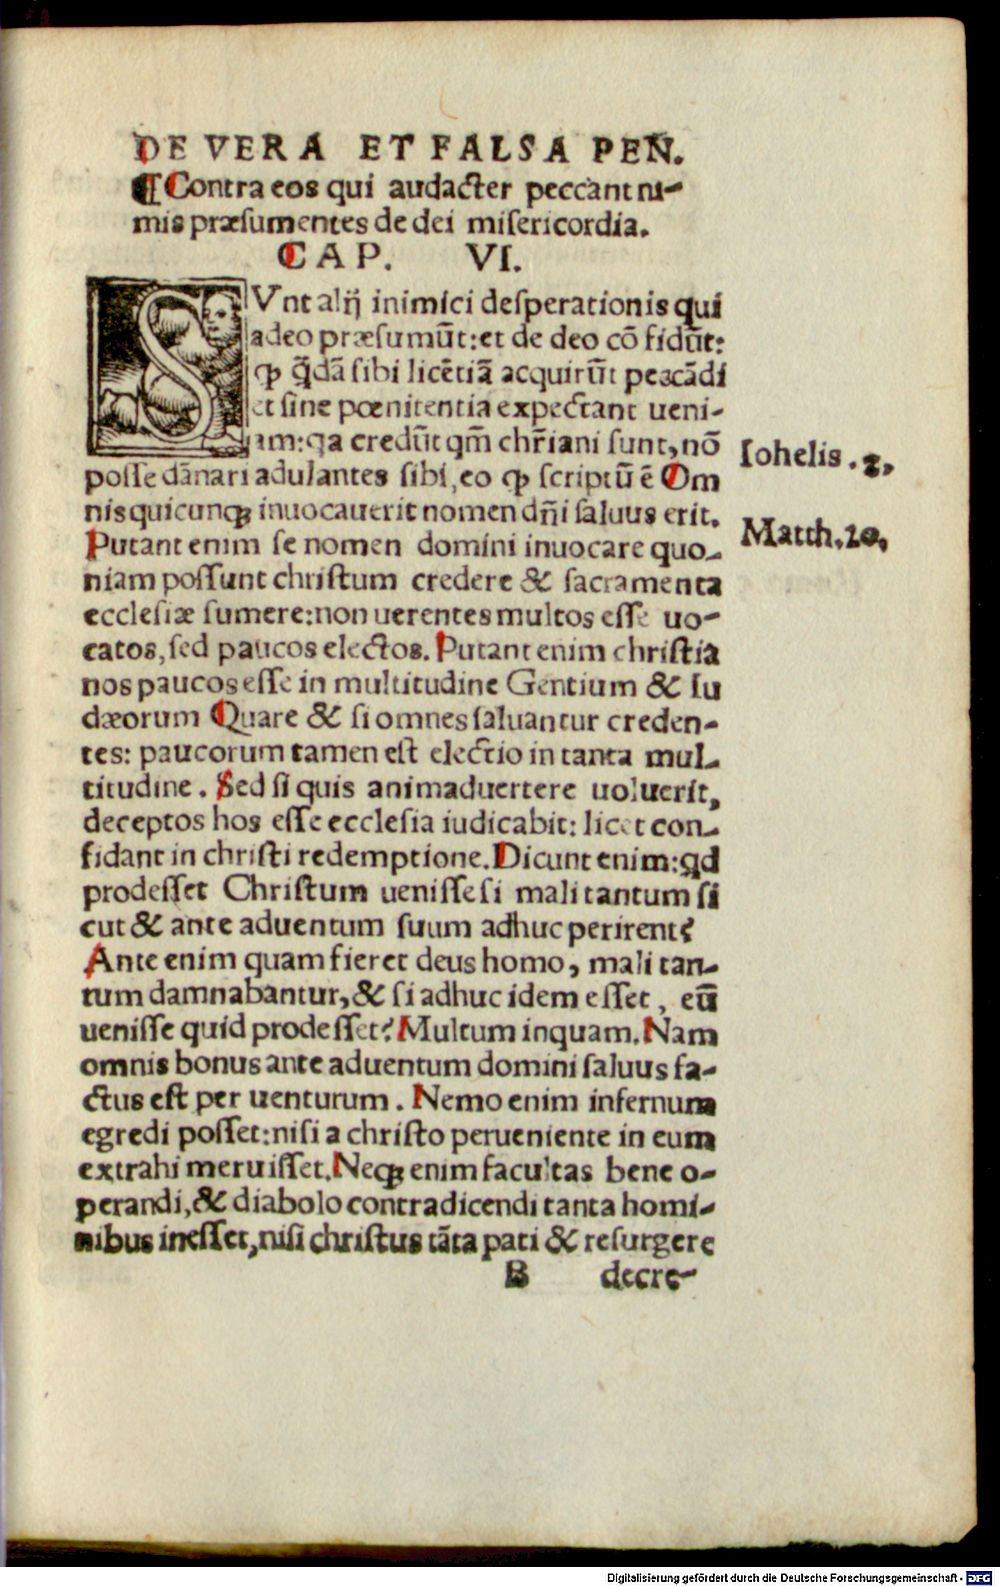 DE VERA ET FALSA PEN.
¶Contra eos qui audacter peccant ni-
mis præsumentes de dei misericordia.
CAP. VI.
SVnt alij inimici desperationis qui
adeo præsumūt: et de deo cō fidūt:
ꝙ q̄dā sibi licētiā acquirūt peccādi
et sine pœnitentia expectant ueni-
am: qa credūt qm̄ chr̄iani sunt, nō
posse dānari adulantes sibi, eo ꝙ scriptū ē Om
nis quicunqꝫ inuocauerit nomen dn̄i saluus erit.
Putant enim se nomen domini inuocare quo-
niam possunt christum credere & sacramenta
ecclesiæ sumere: non uerentes multos esse uo-
catos, sed paucos electos. Putant enim christia
nos paucos esse in multitudine Gentium & Iu
dæorum Quare & si omnes saluantur creden-
tes: paucorum tamen est electio in tanta mul-
titudine. Sed si quis animaduertere uoluerit,
deceptos hos esse ecclesia iudicabit: licet con-
fidant in christi redemptione. Dicunt enim: qd
prodesset Christum uenisse si mali tantum si
cut & ante aduentum suum adhuc perirent?
Ante enim quam fieret deus homo, mali tan-
tum damnabantur, & si adhuc idem esset, eū
uenisse quid prodesset? Multum inquam. Nam
omnis bonus ante aduentum domini saluus fa-
ctus est per uenturum. Nemo enim infernum
egredi posset: nisi a christo perueniente in eum
extrahi meruisset. Neqꝫ enim facultas bene o-
perandi, & diabolo contradicendi tanta homi-
nibus inesset, nisi christus tāta pati & resurgere
B decre-
Iohelis. 2,
Matth. 20,
Digitalisierung gefördert durch die Deutsche Forschungsgemeinschaft - DFG